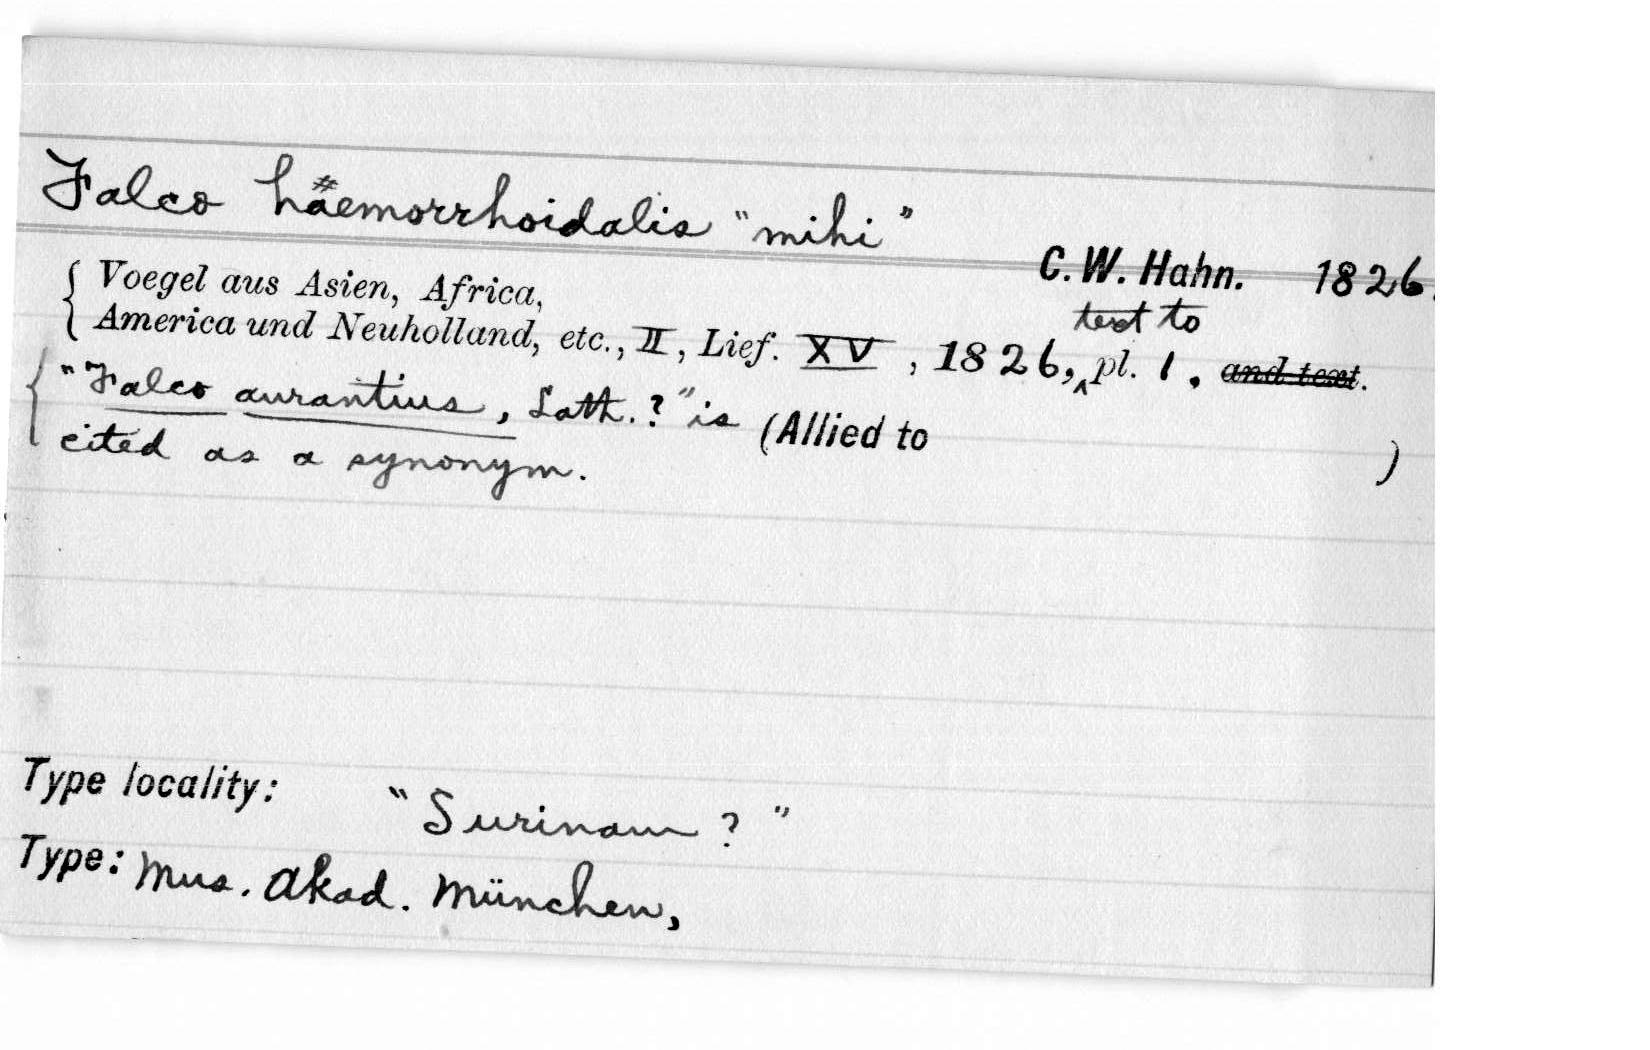 Falco hæmorrhoidalis "mihi"
C. W. Hahn. 1826.
Voegel aus Asien, Africa,
text to
America und Neuholland, etc., II, Lief. XV, 1826, ‸ pl. 1. and text.
"Falco aurantius, Lath.?" is (Allied to )
cited as a synonym.
Type locality: "Surinam ?"
Type: Mus. Akad. München,